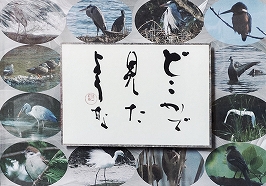 どこかで
見た
ような